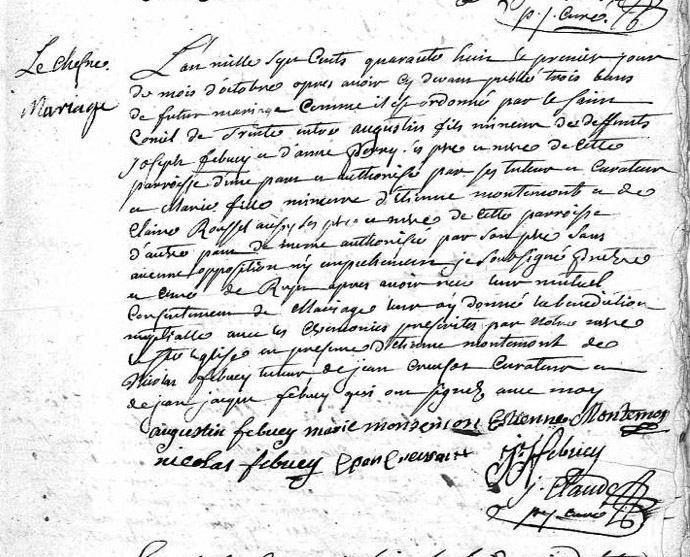 p.j. Curé
Le chesne
Mariage
L'an mille sept Cents quarante huit le premier jour
du mois d'octobre apres avoir cy devant publié trois bans
de futur mariage Comme il est ordonné par le Saint
Concil de Trente entre augustin fils mineur des deffunts
Joseph febvey et d'anne ses pere et mere de Cette
parroisse d'une part et authorisé par ses tuteur et Curateur
et Marie fille mineure d'Etienne montemont et de
Claire Roussel aussy ses pere et mere de Cette parroisse
d'autre part de meme authorisée par son pere sans
aucune opposition ny empechement je soubsigné pretre
et Curé de Rupt apres avoir receu leur mutuel
Consentement de Mariage leur ay donné la benediction
nuptialle avec les Ceremonies prescrites par notre mere
Ste Eglise en presence d'étienne montemont de
Nicolas febvey tuteur de jean Curateur et
de jean jacque febvey qui ont signez avec moy
augustin febvey marie montemont Estienne Montemont
nicolas febvey
J febvey
j. Claude
p.j. Curé